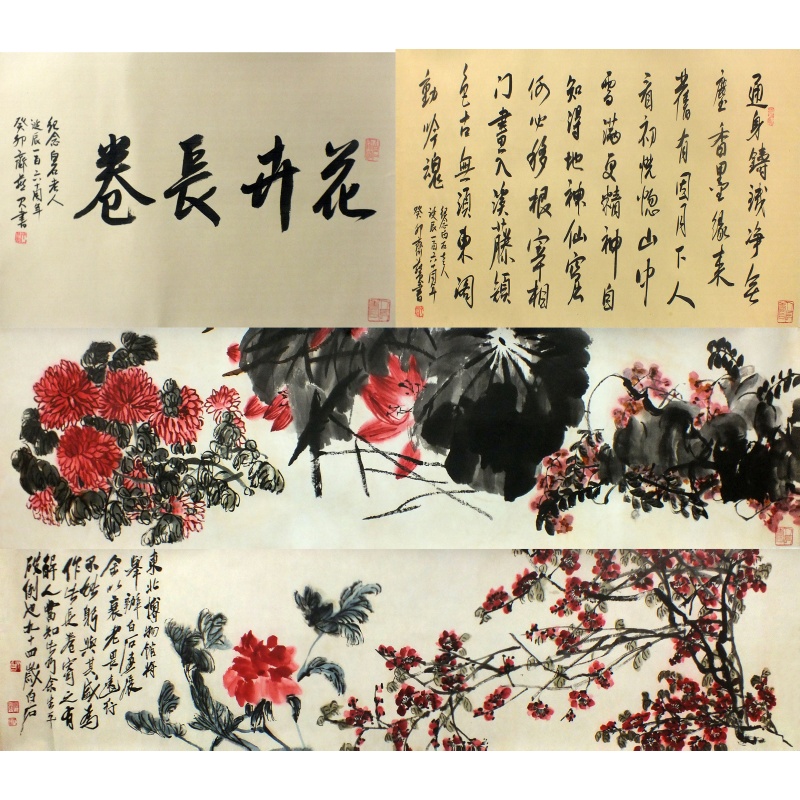 花卉長卷
紀念白石老人
誕辰一百六十周年
癸卯齊 書
通身鑄鐵净無
塵香墨緣來
舊有因月下人
看初恍惚山中
雪滿更精神自
知得地神仙窟
何必移根宰相
門畫入溪藤穎
色古無須東閣
動吟魂
紀念白石老人
誕辰一百六十周年
癸卯齊 書
東北博物館將
舉辦白石畫展
余以衰老畏遠行
不能躬與其盛為
作此長卷寄之有
解人當知此為余生平
破例也九十四歲白石